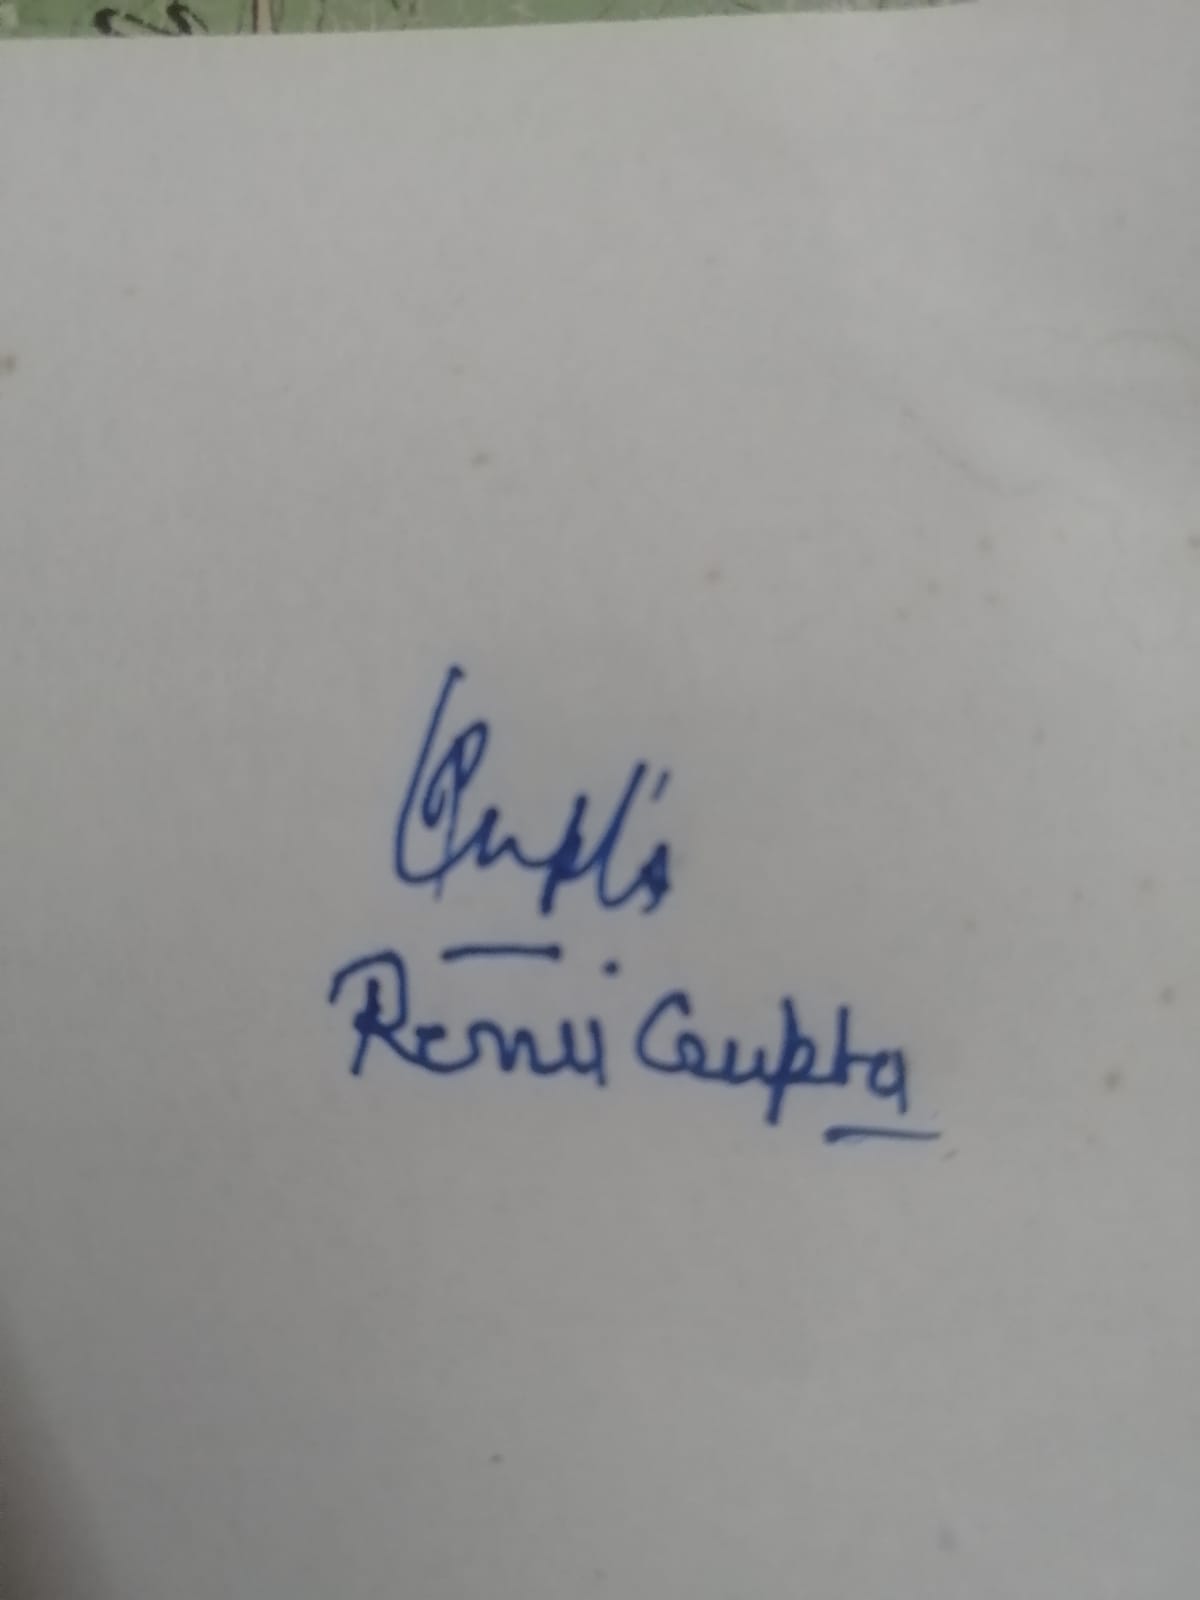 Gupta
Renu Gupta